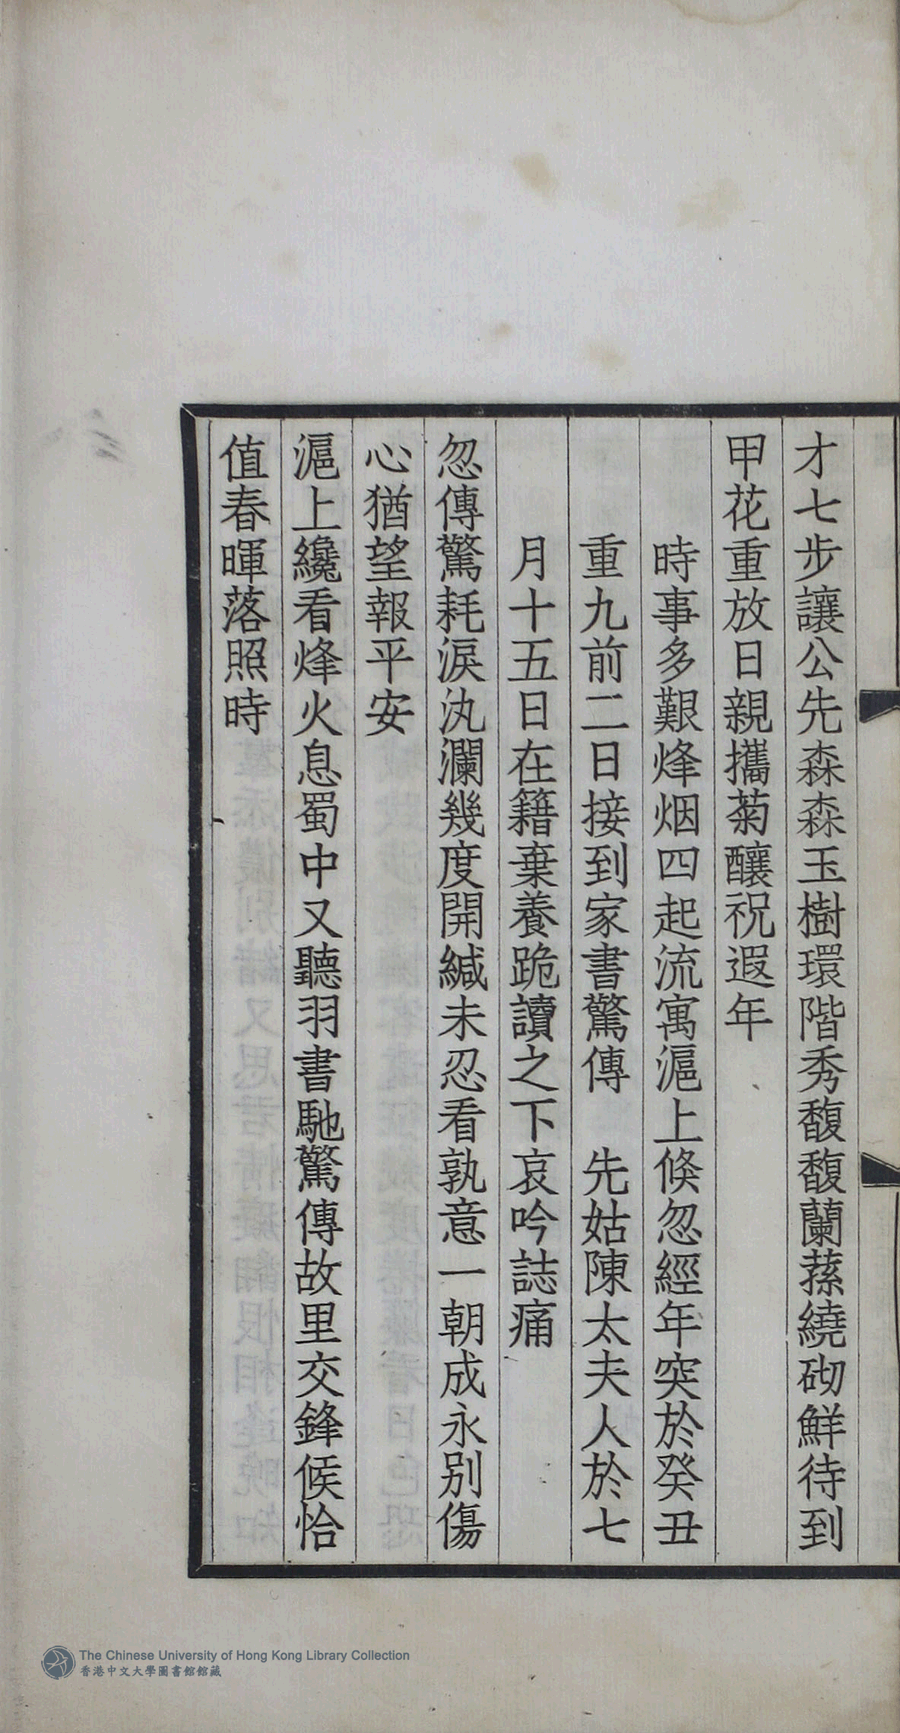 才七步讓公先森森玉樹環階秀馥馥蘭蓀繞砌鮮待到
甲花重放日親攜菊釀祝遐年
時事多艱烽烟四起流寓滬上倏忽經年突於癸丑
重九前二日接到家書驚傳　先姑陳太夫人於七
月十五日在籍棄養跪讀之下哀吟誌痛
忽傳驚耗淚汍瀾幾度開緘未忍看孰意一朝成永別傷
心猶望報平安
滬上纔看烽火息蜀中又聽羽書馳驚傳故里交鋒候恰
值春暉落照時
The Chinese University of Hong Kong Library Collection
香港中文大學圖書館館藏